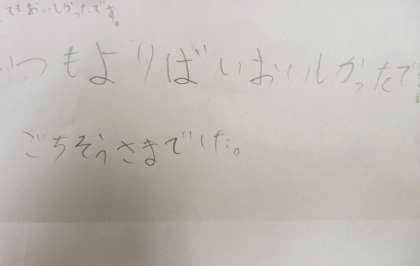 てもおいしかったです。
いつもよりばいおいしかったで
ごちそうさまでした。